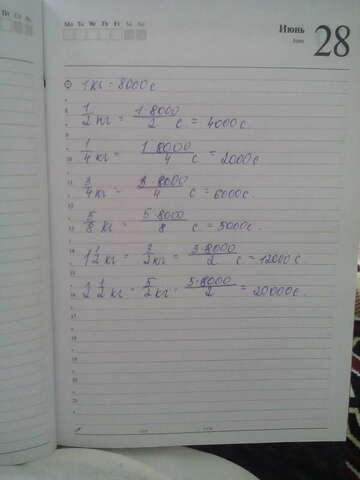 Mo Tu We Th Fr Sa Su
Июнь 28
June
1кг - 8000с
1/2 кг = 1·8000/2 с = 4000с.
1/4 кг = 1·8000/4 с = 2000с
3/4 кг = 3·8000/4 с = 6000с.
5/8 кг = 5·8000/8 с = 5000с.
1 1/2 кг = 3/2 кг = 3·8000/2 с = 12000с
2 1/2 кг = 5/2 кг = 5·8000/2 = 20000с.